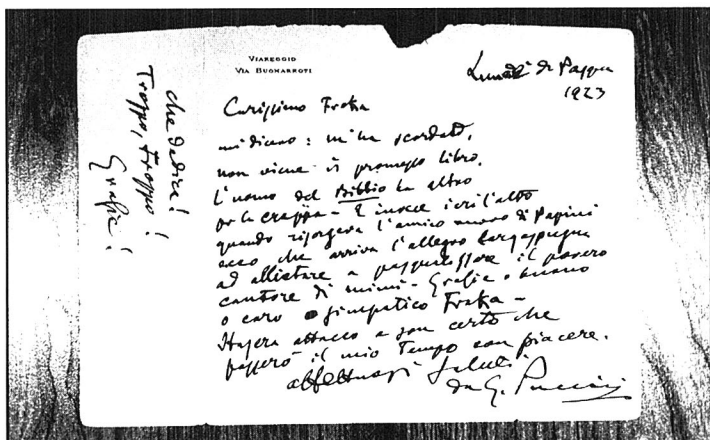 VIAREGGIO
VIA BUONARROTI
Lunedì di Pasqua
1923
Carissimo Fraka
mi dicevo: m'ha scordato,
non viene il promesso libro.
L'uomo del Bibbio ha altro
per la crappa - E invece ieri l'altro
quando risorgeva l'amico nuovo di Papini
ecco che arriva l'allegro
ad allietare a il povero
cantore di Mimì - Grazie o buono
o caro o simpatico Fraka -
Stasera attacco e son certo che
passerò il mio Tempo con piacere.
affettuosi saluti
da G. Puccini
che dedica!
Troppo, troppo!
Grazie!